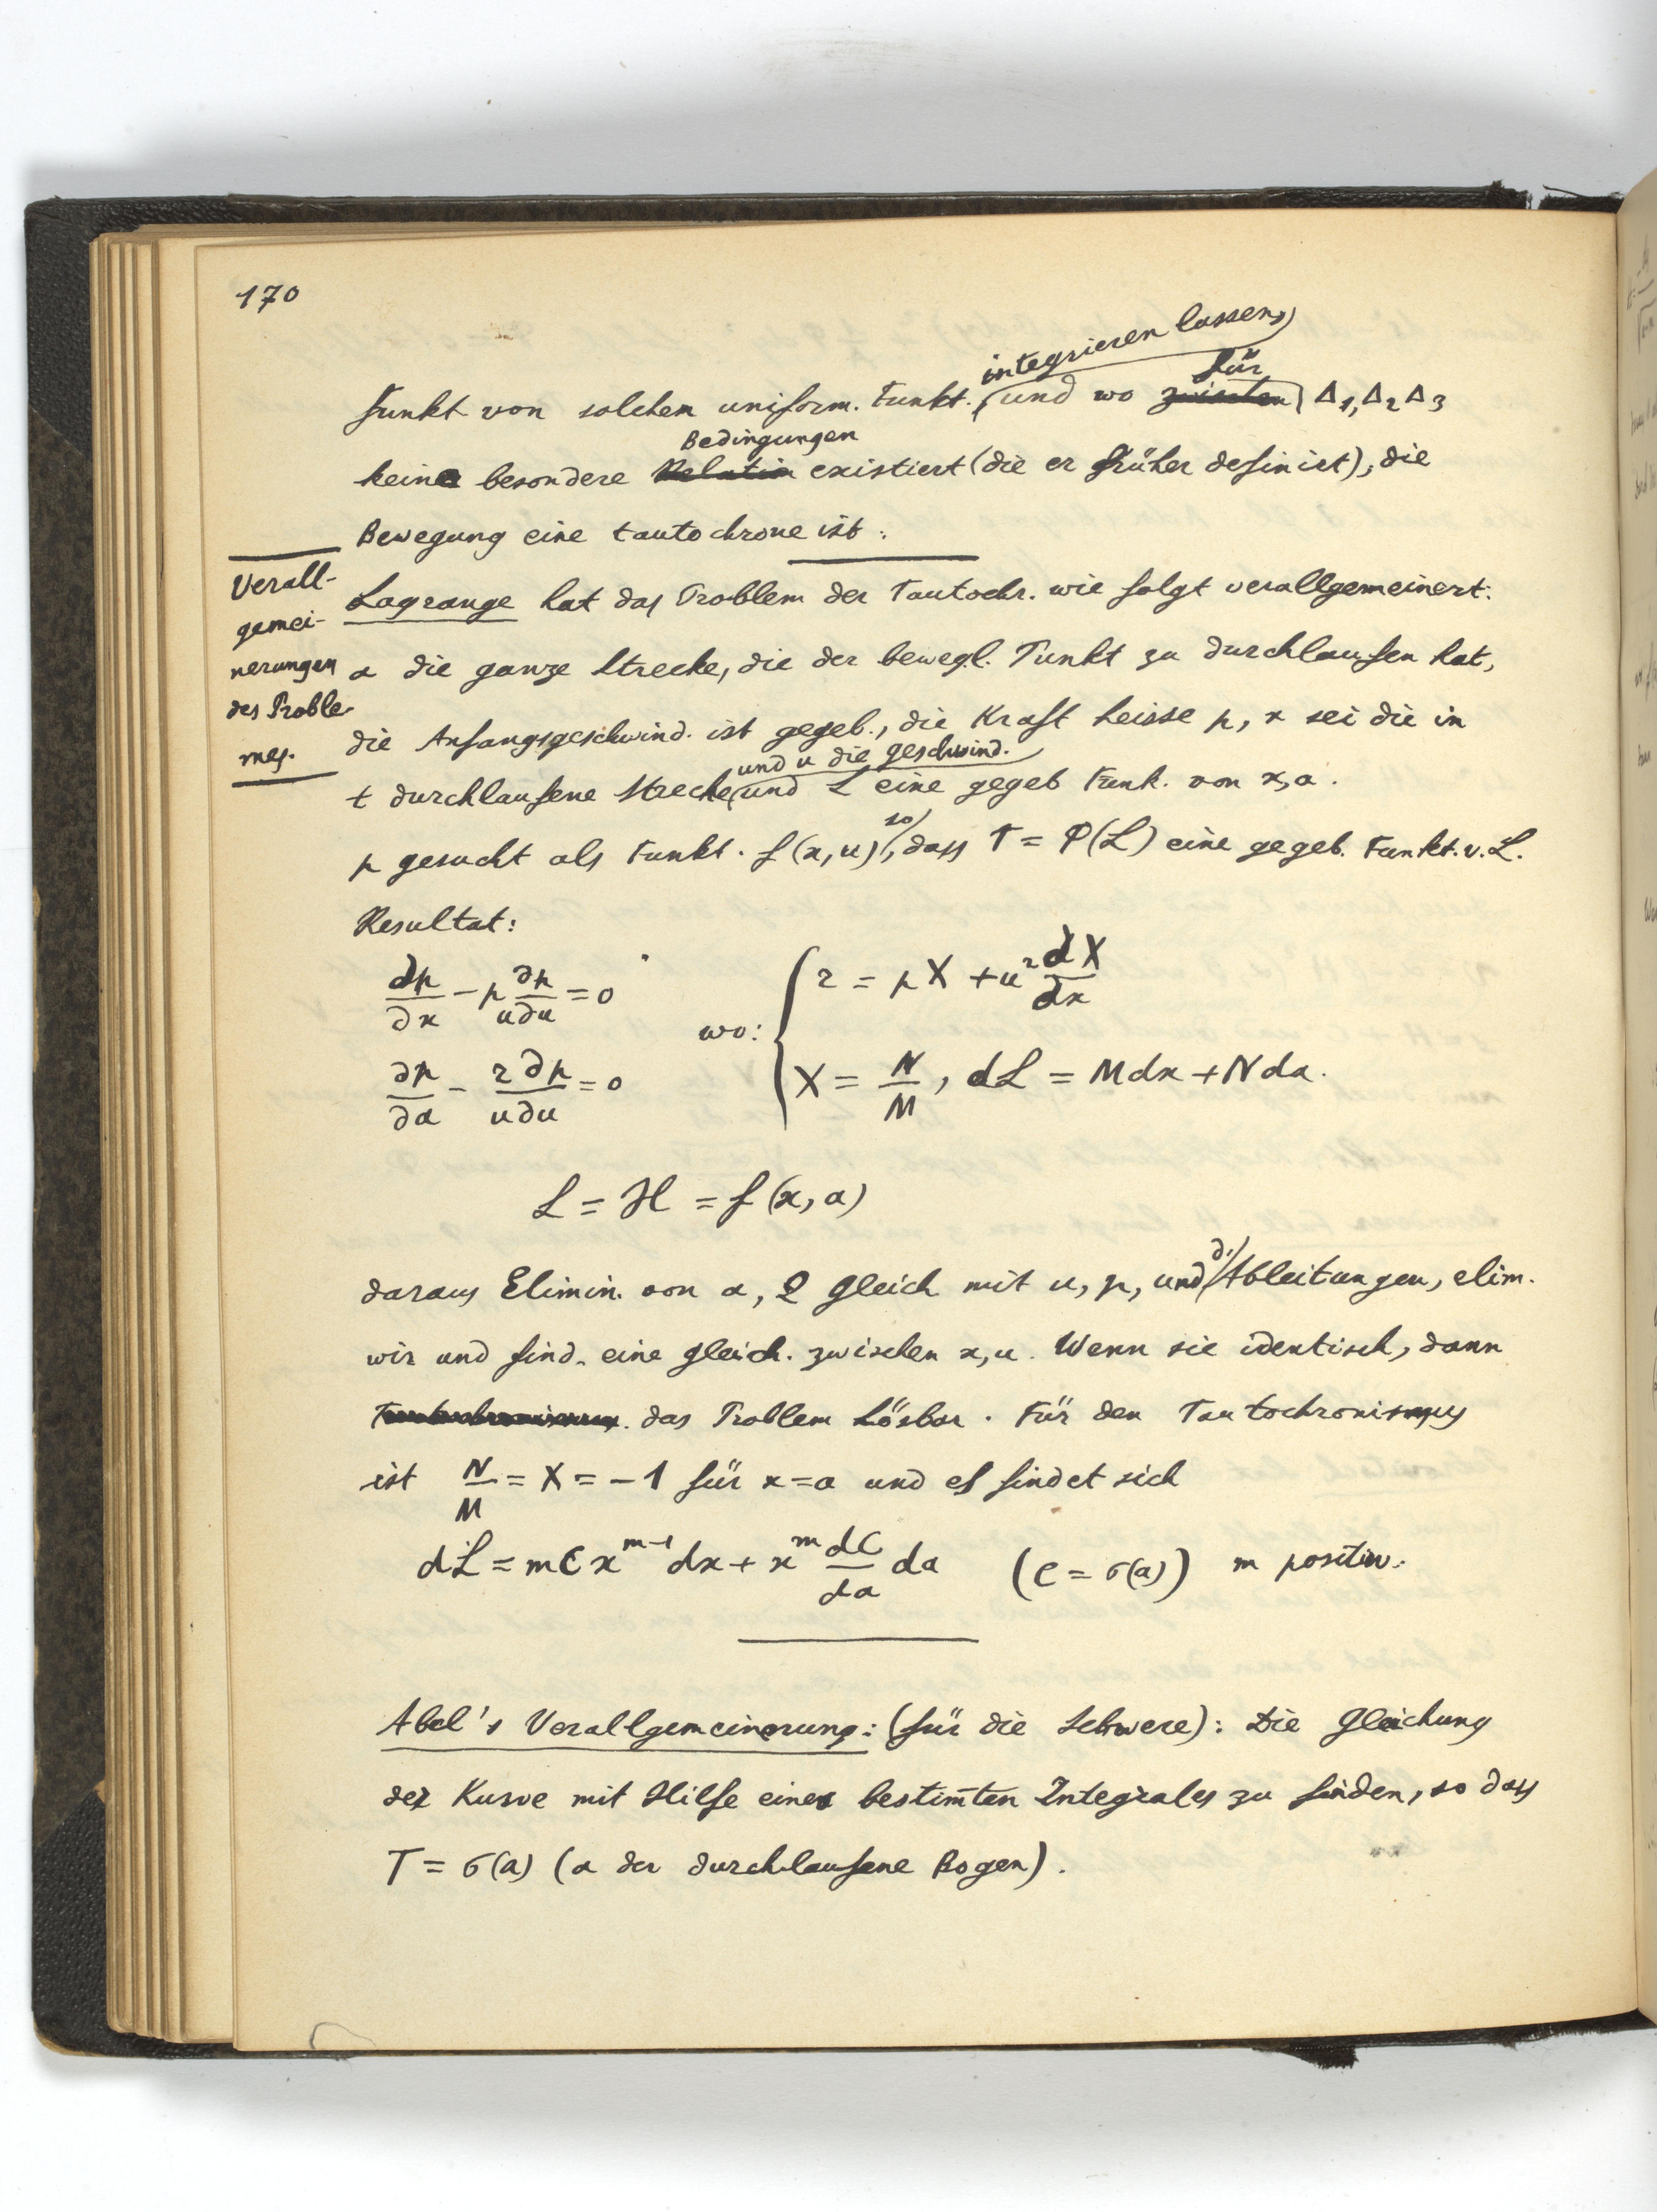 170
integrieren lassen,
für
funkt von solchen uniform. Funkt. und wo zwischen Δ1, Δ2 Δ3
Bedingungen
keine besondere Relation existiert (die er früher definiert), die
Bewegung eine tautochrone ist.
Verall-
gemei-
nerungen
des Proble-
mes.
Lagrange hat das Problem der Tautochr. wie folgt verallgemeinert:
a die ganze Strecke, die der bewegl. Punkt zu durchlaufen hat,
die Anfangsgeschwind. ist gegeb., die Kraft heisse p, x sei die in
und u die geschwind.
t durchlaufene Strecke und L eine gegeb Funk. von x, a.
so
p gesucht als Funkt. f(x, u), dass T = φ(L) eine gegeb. Funkt. v. L.
Resultat:
∂p/∂x − p ∂p/u∂u = 0
∂p/∂a − r∂p/u∂u = 0
wo:
r = pX + u² dX/dx
X = N/M, dL = Mdx + Nda.
L = H = f(x, a)
d.
daraus Elimin. von a, 2 gleich mit u, p, und Ableitungen, elim.
wir und find. eine gleich. zwischen x, u. Wenn sie identisch, dann
das Problem Lösbar. Für den Tautochronismus
ist N/M = X = −1 für x = a und es findet sich
dL = mCx^{m−1}dx + x^m dC/da da (C = σ(a)) m positiv.
Abel's Verallgemeinerung: (für die Schwere): Die Gleichung
der Kurve mit Hilfe eines bestim̄ten Integrales zu finden, so dass
T = σ(a) (a der durchlaufene Bogen).